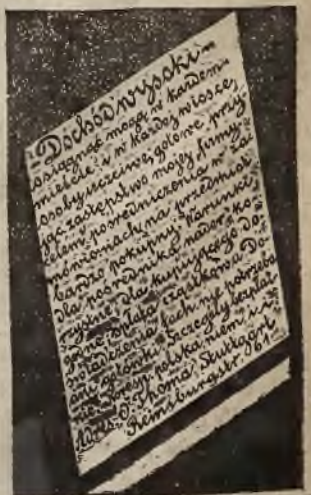 Dochód wysoki
osiągnąć mogą w każdem
mieście i w każdej wiosce,
osoby uczciwe, gotowe przy-
jąć zastępstwo mojej firmy
celem pośredniczenia w za-
mówieniach na przedmiot
bardzo pokupny. Warunki
dla pośrednika nader ko-
rzystne, dla kupującego do-
godne: spłata cząstkowa. Do-
świadczenia fach. potrzeba
ani gotówki. Szczegóły bezpłat-
nie.
J. Thoma, Stuttgart
Reinsburgstr. 61